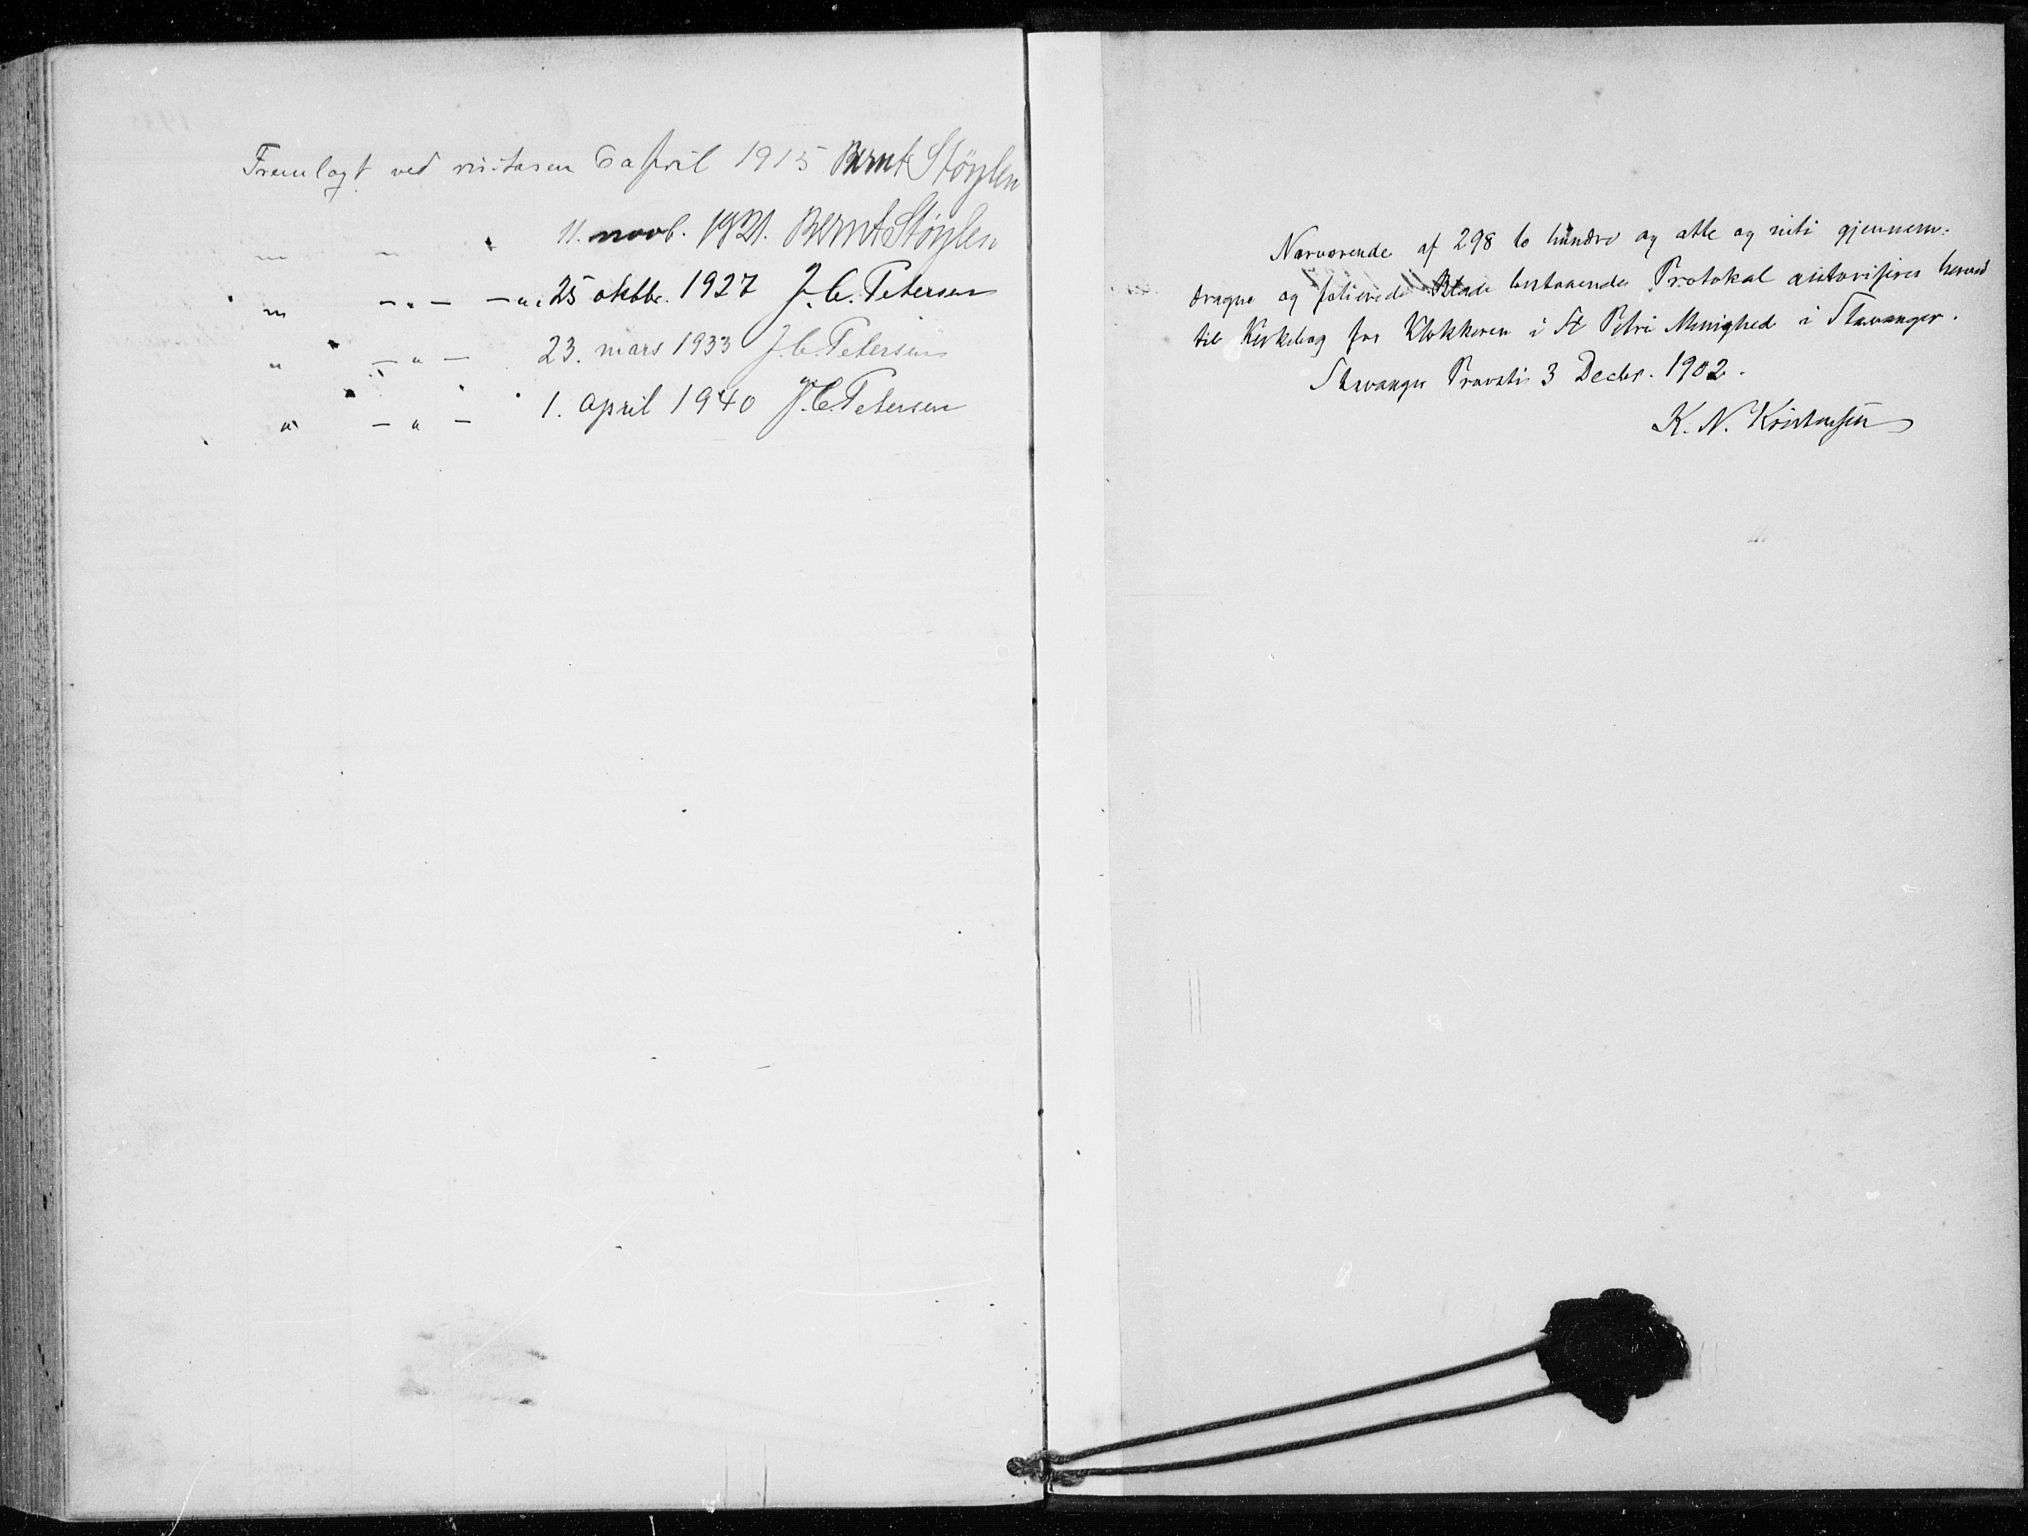 Fremlagt ved visitasen 6 april 1915 Bernt Støylen
" - " 11. novb. 1921. Bernt Støylen
" - " - - " . 25 oktbr. 1927 J. C. Petersen
" - " - 23. mars 1933 J. C. Petersen
" - " - 1. april 1940 J. C. Petersen
Nærværende af 298 to hundre og otte og niti gjennem=
dragne og folierede Blade bestaaende Protokol autoriseres herved
til Kirkebog for Klokkeren i St Petri Menighed i Stavanger.
Stavanger Provsti 3 Decbr. 1902.
K. N. Kristensen